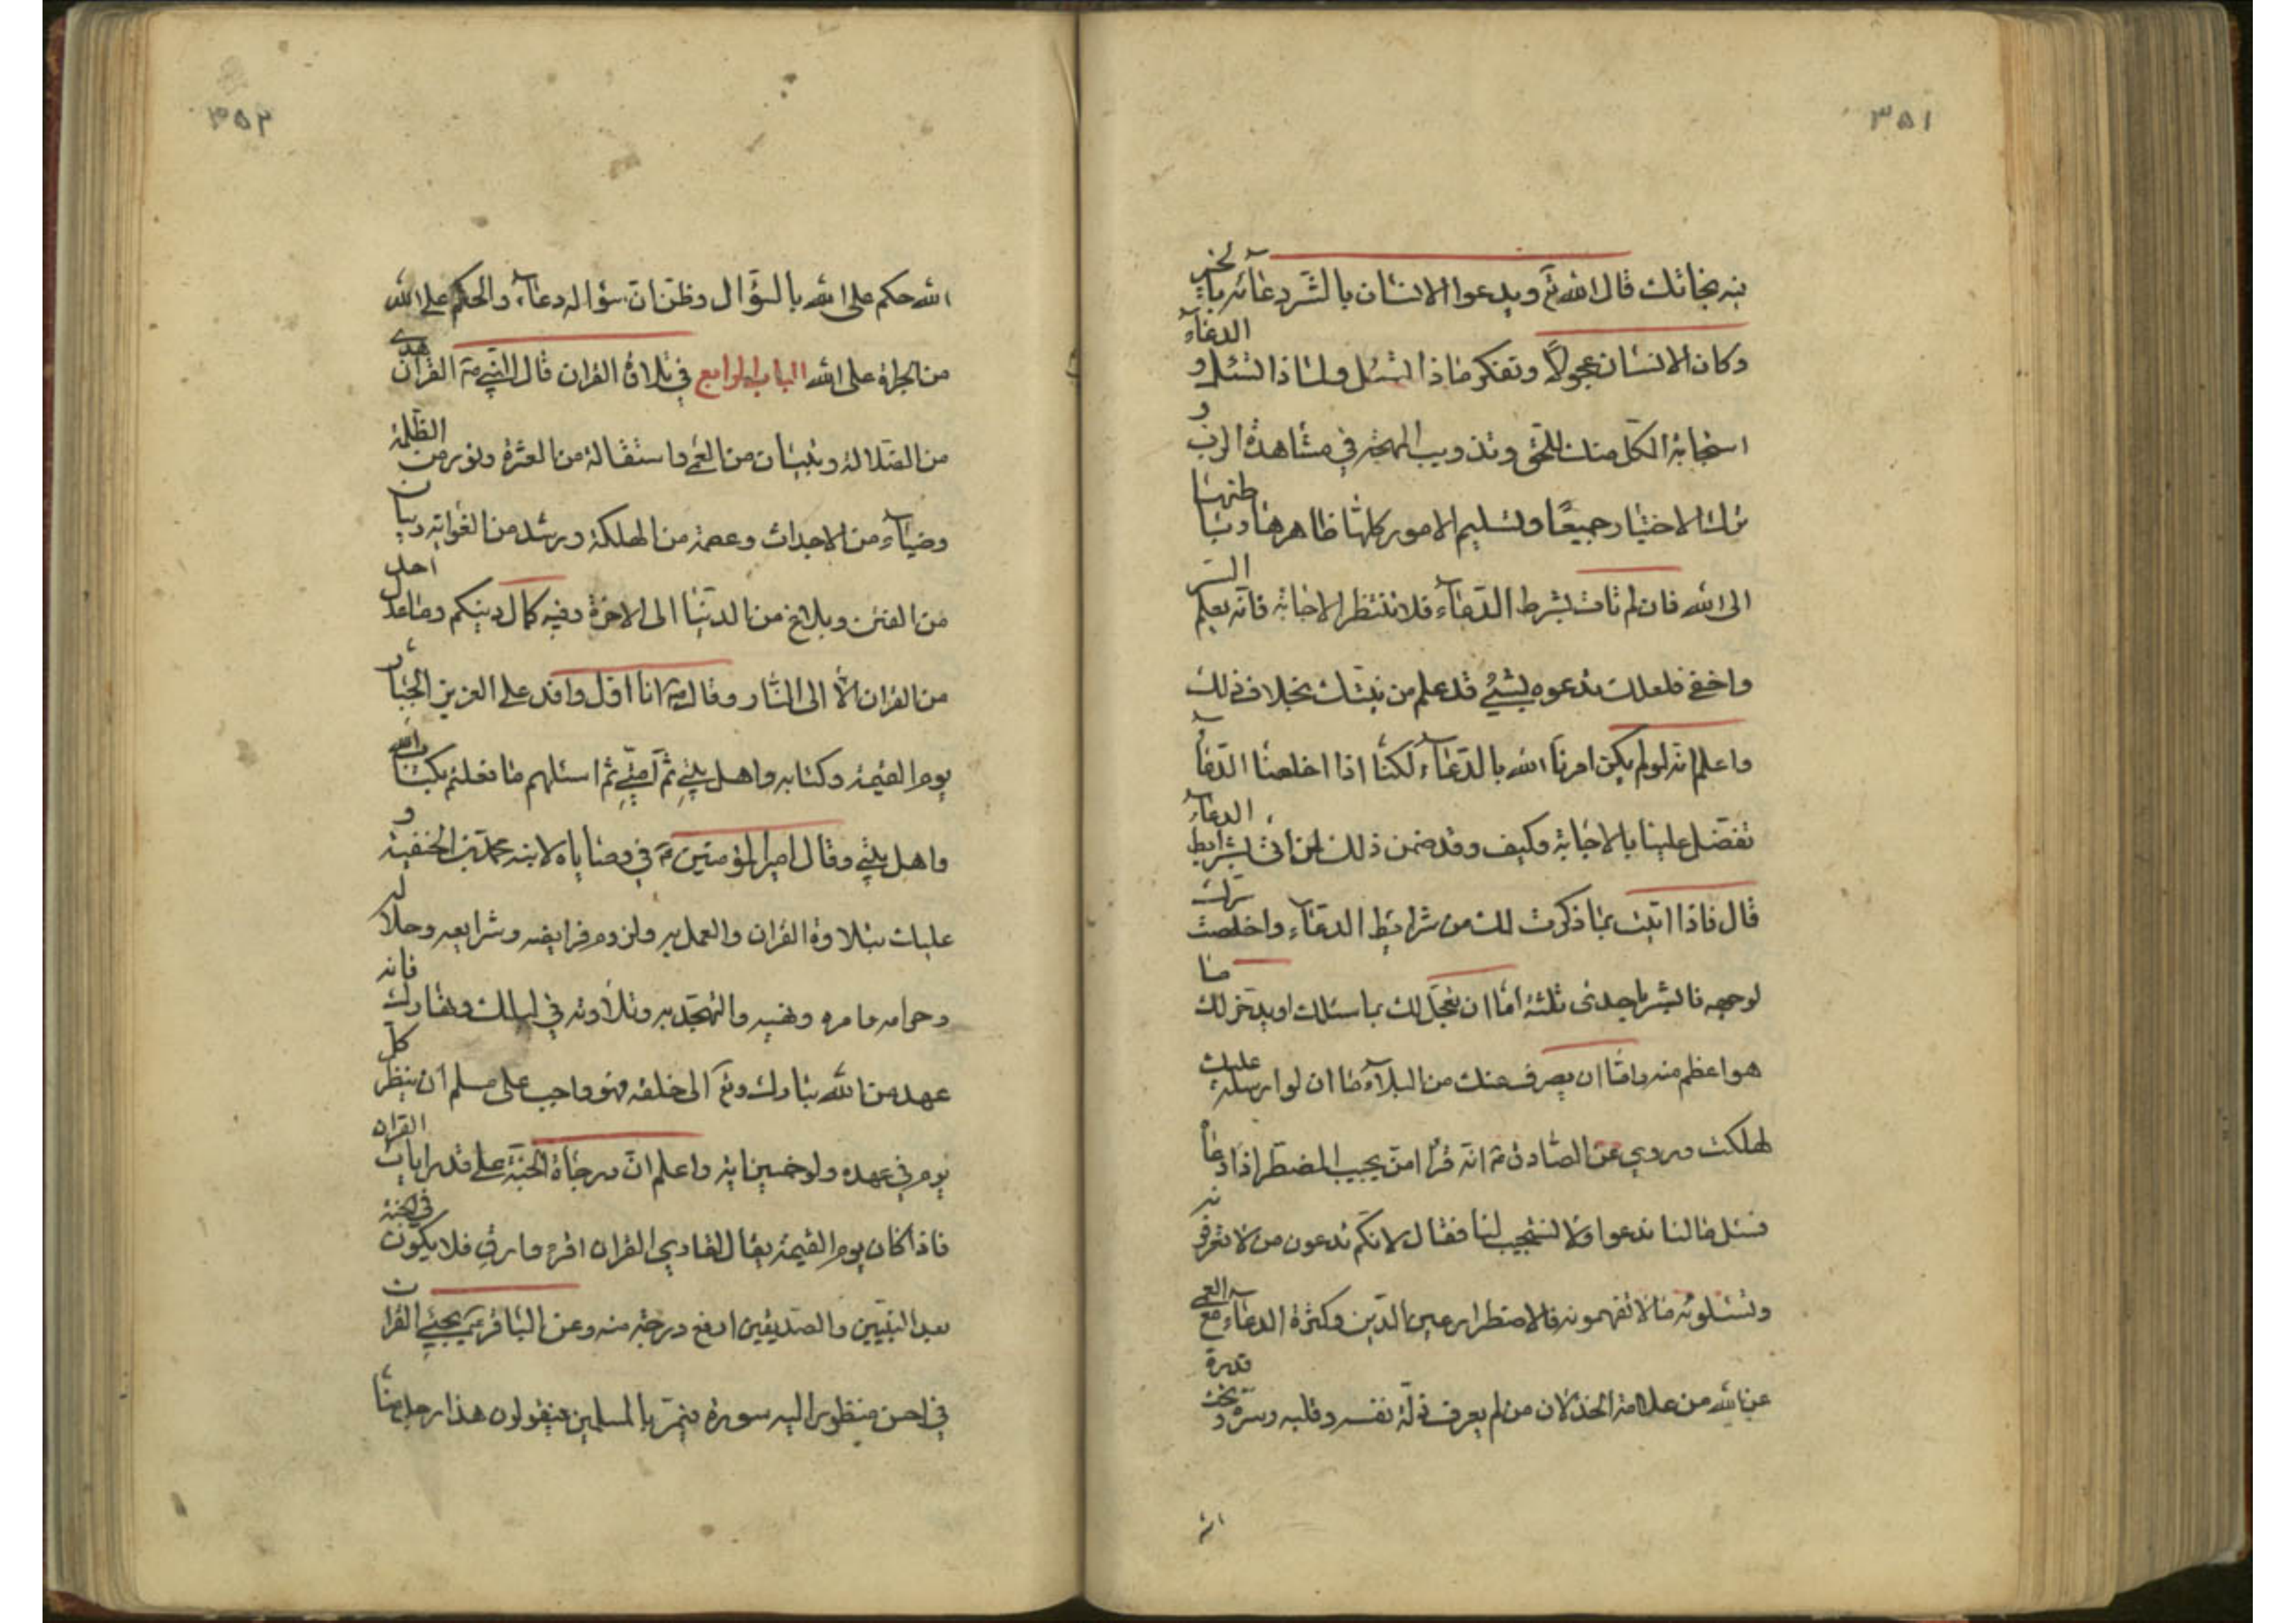 ٣٥١
فيه نجاتك قال الله تع ويدعوا الانسان بالشر دعائه بالخير
وكان الانسان عجولاً وتفكر ماذا تسئل ولماذا تسئل و الدعآء
استجابة الكل منك للحق وتذويب المهجة في مشاهدة الرب و
ترك الاختيار جميعًا وتسليم الامور كلها ظاهرها وباطنها
الى الله فان لم تات بشرط الدعآء فلا تنتظر الاجابة فانه يعلم السر
واخفى فلعلك تدعوه بشيء قد علم من نيتك بخلاف ذلك
واعلم انه لو لم يكن امرنا الله بالدعآء لكنا اذا اخلصنا الدعآ
تفضل علينا بالاجابة فكيف وقد ضمن ذلك لمن اتى بشرايط الدعآء
قال فاذا اتيت بما ذكرت لك من شرايط الدعآء واخلصت سرك
لوجهه فابشر باحدى ثلثة اما ان يعجل لك بما سئلت او يدخر لك ما
هو اعظم منه واما ان يصرف عنك من البلآء ما ان لو ارسله عليك
لهلكت وروي عن الصادق ع انه قرأ امن يجيب المضطر اذا دعا
فسئل ما لنا ندعوا ولا تستجيب لنا فقال لانكم تدعون من لا تعرفونه
وتسئلونه ما لا تفهمونه فالاضطرار عين الدين وكثرة الدعآء مع العمى
عن الله من علامة الخذلان من لم يعرف ذلة نفسه وقلبه وسره تحت قدرة
٣٥٢
الله حكم على الله بالسؤال وظن ان سؤاله دعآء والحكم على الله
من الجراة على الله الباب الرابع في تلاوة القران قال النبي ص القرآن هدى
من الضلالة وتبيان من العمى واستقالة من العثرة ونور من الظلمة
وضيآء من الاحداث وعصمة من الهلكة ورشد من الغواية وبيان
من الفتن وبلاغ من الدنيا الى الاخرة وفيه كمال دينكم وما عدل احد
من القران الا الى النار وقال ص انا اول وافد على العزيز الجبار
يوم القيمة وكتابه واهل بيتي ثم امتي ثم اسئلهم ما فعلتم بكتاب الله
واهل بيتي وقال امير المؤمنين ع في وصاياه لابنه محمد بن الحنفية و
عليك بتلاوة القران والعمل به ولزوم فرايضه وشرايعه وحلاله
وحرامه وامره ونهيه والتهجد به وتلاوته في ليلك ونهارك فانه
عهد من الله تبارك وتع الى خلقه فهو واجب على كل مسلم ان ينظر
يوم في عهده ولو خمسين اية واعلم ان درجاة الجنة على قدر ايات القران
فاذا كان يوم القيمة يقال لقاري القران اقره وارق فلا يكون في الجنة
بعد النبيين والصديقين ارفع درجة منه وعن الباقر ع يجيئ القران
في احسن منظور اليه سورة فيمر بالمسلمين فيقولون هذا رجل منا